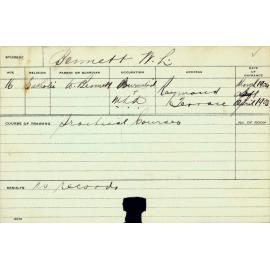 STUDENT Bennett W. L.
AGE RELIGION PARENT OR GUARDIAN OCCUPATION ADDRESS DATE OF ENTRANCE
16 Catholic A. Bennett Raymond
Terrace April 1923
COURSE OF TRAINING Practical Courses NO. OF ROOM
RESULTS No records